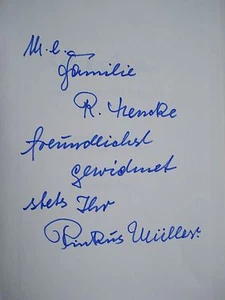 M. l.
Familie
R. Hencke
freundlichst
gewidmet
stets Ihr
Pinkus Müller.